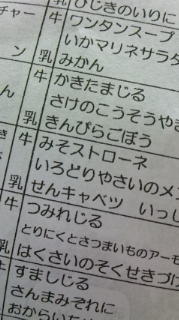 ひじきのいりに
チャー
牛 ワンタンスープ
いかマリネサラダ
ン 乳 みかん
牛 かきたまじる
さけのこうそうやき
ん 乳 きんぴらごぼう
牛 みそストローネ
いろどりやさいのメン
乳 せんキャベツ いっし
牛 つみれじる
とりにくとさつまいものアーモ
乳 はくさいのそくせきづけ
牛 すましじる
さんまみぞれに
おからいり